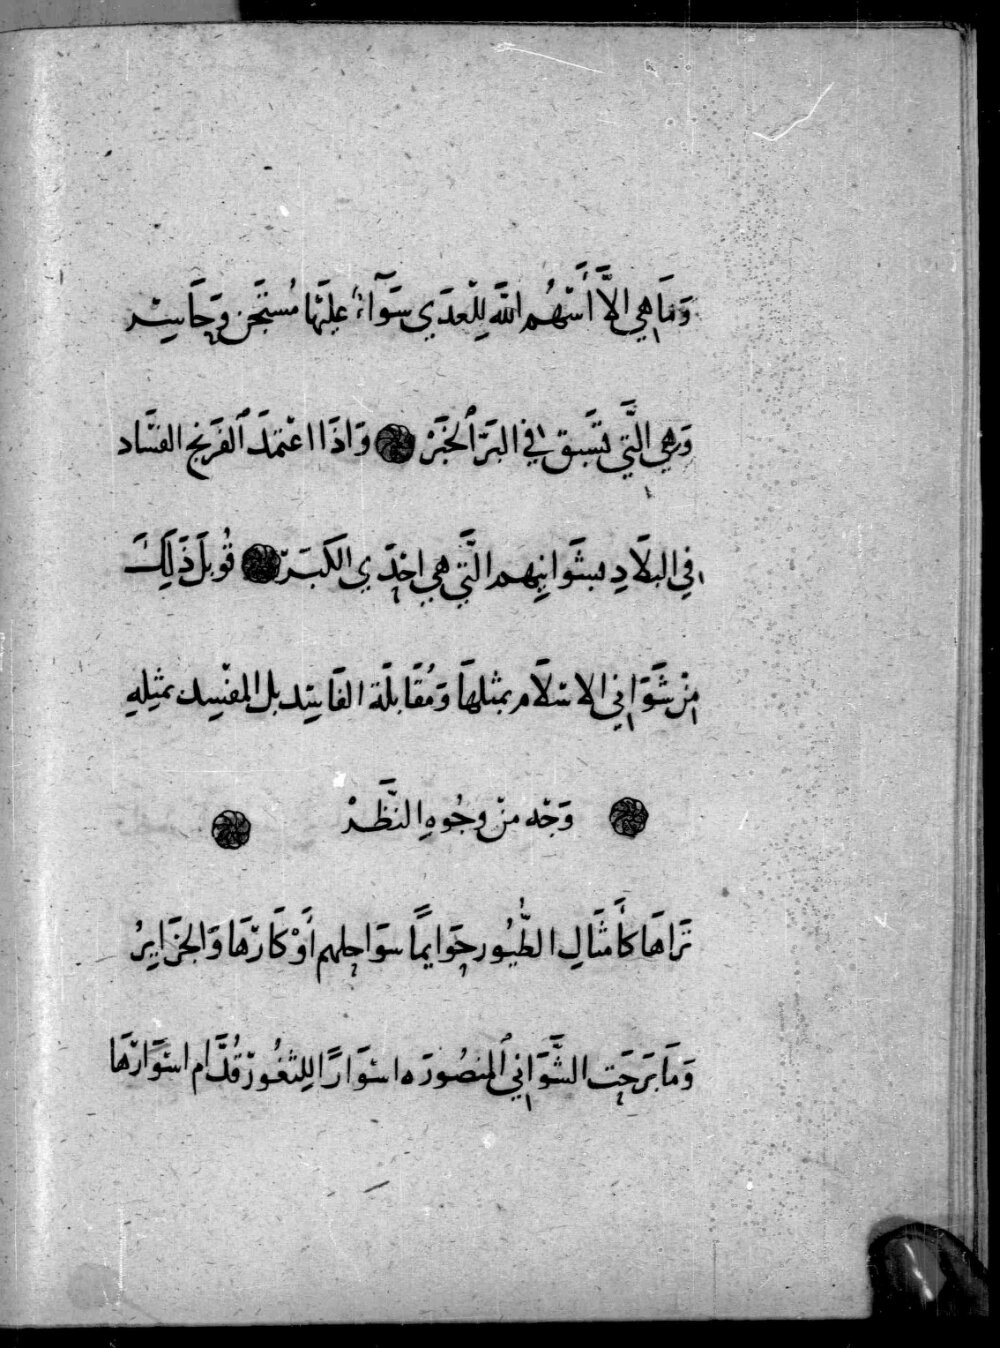 وَمَا هِي الَّا أَسْهُم اللَّه لِلْعدَي سَوَآءٌ عليَها مُستَجَن وَحَاسِر
وَهِي الَّتِي تَسَبق في البَرّ الخَبَرْ وَاذَا اعْتمدَ الفَرَنج الفسَاد
في البلَادِ بشَوَانِيهم الَّتي هي احْدَي الكُبَرْ قُوبلَ ذَلِكَ
منْ شَوَانِي الاسْلَام بمثلهَا وَمُقَابلَة الفَاسِد بل المفْسِد بمثِلهِ
وَجْه منْ وجُوهِ النَّظَرْ
تَرَاهَا كَأَمثَالِ الطُّيُور حَوَايمًا سَوَاحلهم أَوْكَارهَا وَالجَزَايرُ
وَمَا بَرَحَت الشَّوَاني المنصُورَه اسْوَارًا للِثغُور قُدَّام اسْوَارهَا